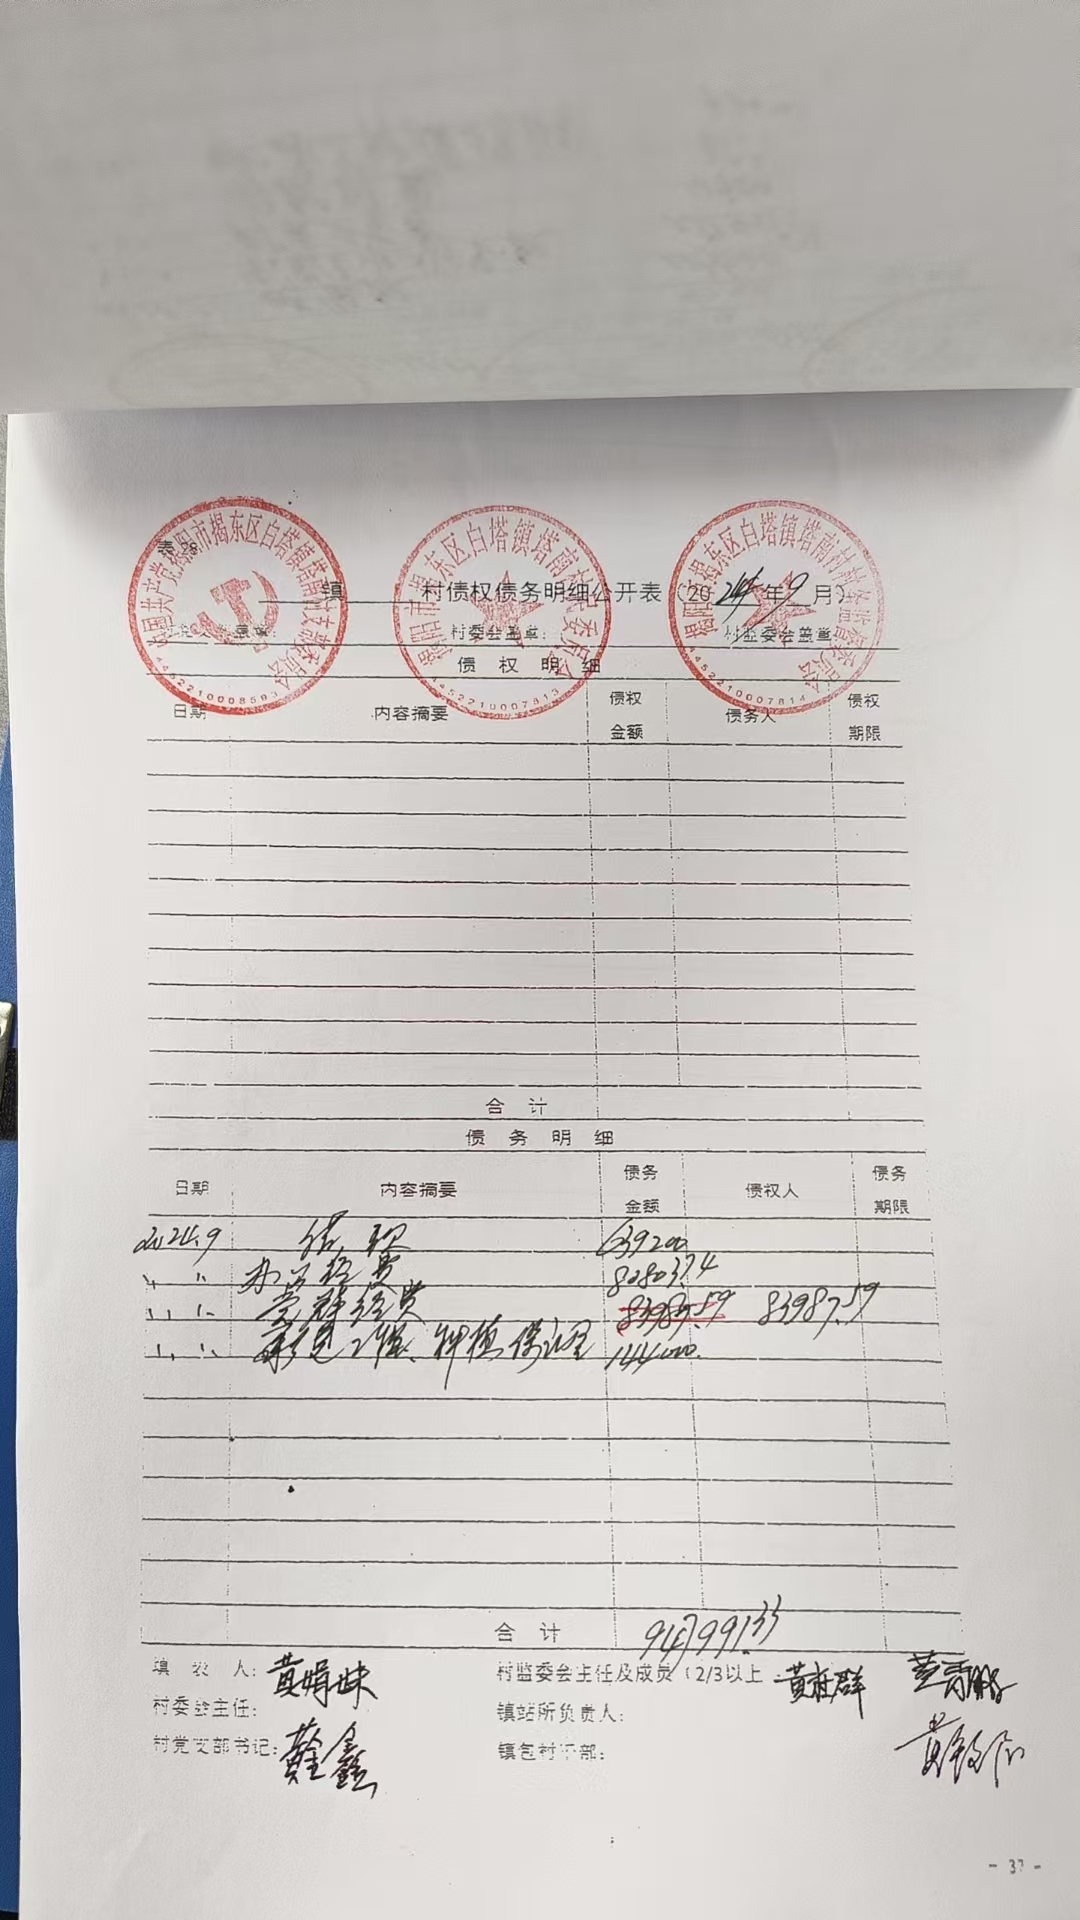 中国共产党揭阳市揭东区白塔镇塔南村支部委员会
4452210008593
揭阳市揭东区白塔镇塔南村民委员会
4452210007813
揭阳市揭东区白塔镇塔南村村务监督委员会
4452210007814
镇 村债权债务明细公开表（2024年9月）
村委会盖章： 村监委会盖章
债权明细
日期 内容摘要 债权金额 债务人 债权期限
合计
债务明细
日期 内容摘要 债务金额 债权人 债务期限
2024.9 639200
〃 〃 办公经费 80803.74
〃 〃 党群经费 83987.59 83987.59
〃 〃 种植保证金 144000.
合计 947991.33
填表人：黄娟妹 村监委会主任及成员（2/3以上 黄
村委会主任： 镇站所负责人：
村党支部书记：黄鑫 镇包村干部：
- 37 -